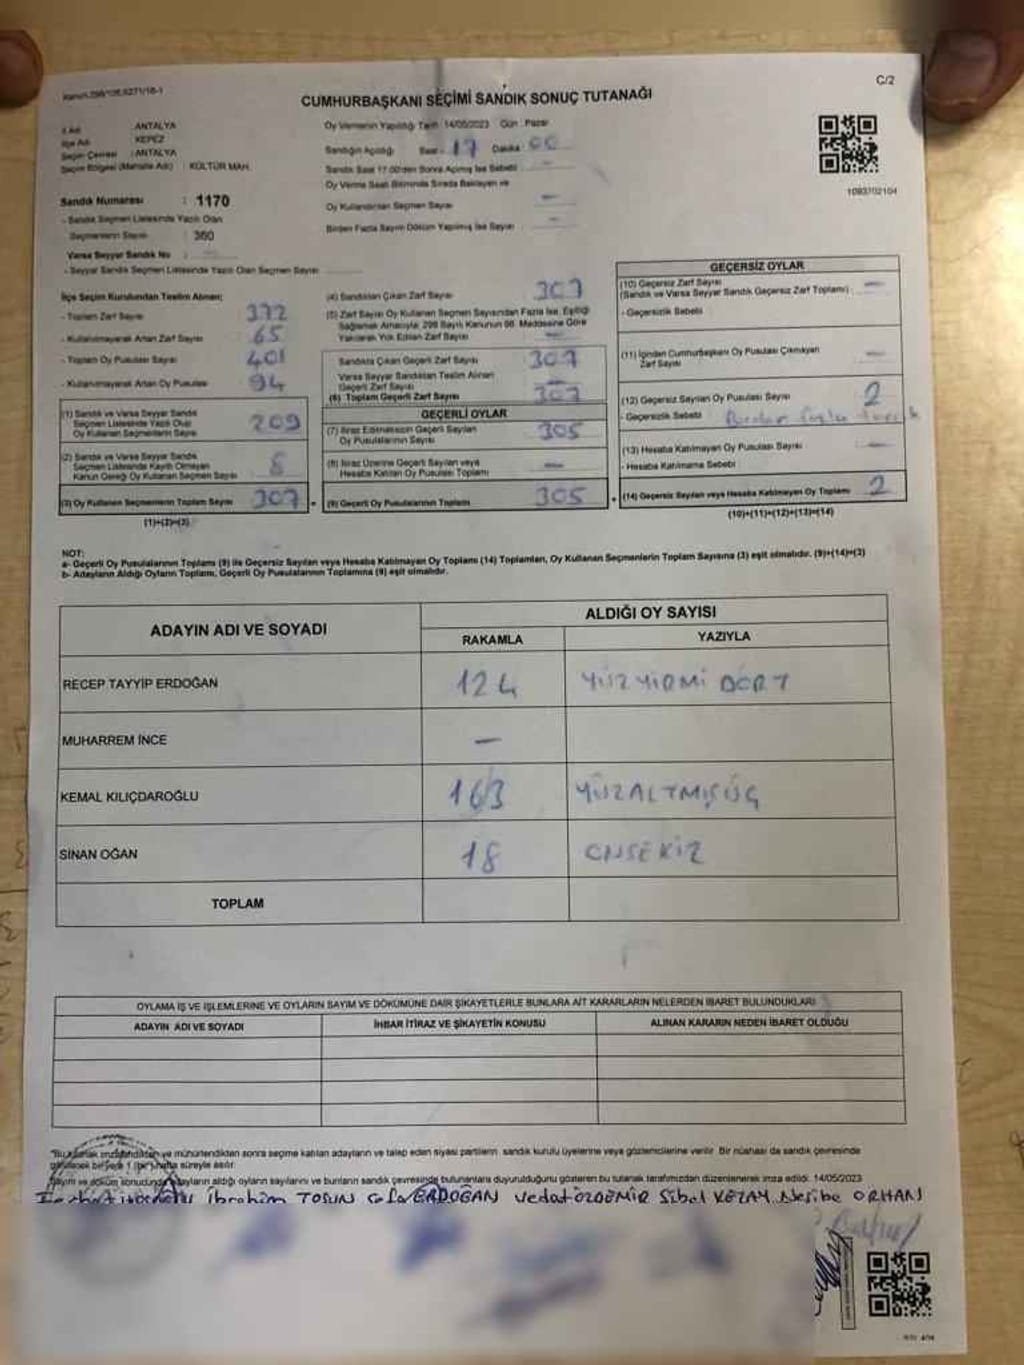 C/2
CUMHURBAŞKANI SEÇİMİ SANDIK SONUÇ TUTANAĞI
İl Adı : ANTALYA
İlçe Adı : KEPEZ
Seçim Çevresi : ANTALYA
Seçim Bölgesi (Mahalle Adı) : KÜLTÜR MAH.
Sandık Numarası : 1170
- Sandık Seçmen Listesinde Yazılı Olan
Seçmenlerin Sayısı : 360
Varsa Seyyar Sandık No :
- Seyyar Sandık Seçmen Listesinde Yazılı Olan Seçmen Sayısı
Oy Vermenin Yapıldığı Tarih : 14/05/2023 Gün : Pazar
Sandığın Açıldığı Saat : 17 Dakika : 00
Sandık Saat 17.00'den Sonra Açılmış İse Sebebi : —
Oy Verme Saati Bitiminde Sırada Bekleyen ve
Oy Kullandırılan Seçmen Sayısı —
Birden Fazla Sayım Döküm Yapılmış İse Sayısı —
1093702104
İlçe Seçim Kurulundan Teslim Alınan;
- Toplam Zarf Sayısı 372
- Kullanılmayarak Artan Zarf Sayısı 65
- Toplam Oy Pusulası Sayısı 401
- Kullanılmayarak Artan Oy Pusulası 94
(1) Sandık ve Varsa Seyyar Sandık
Seçmen Listesinde Yazılı Olup
Oy Kullanan Seçmenlerin Sayısı 209
(2) Sandık ve Varsa Seyyar Sandık
Seçmen Listesinde Kayıtlı Olmayan
Kanun Gereği Oy Kullanan Seçmen Sayısı 8
(3) Oy Kullanan Seçmenlerin Toplam Sayısı 307
(1)+(2)=(3)
(4) Sandıktan Çıkan Zarf Sayısı 307
(5) Zarf Sayısı Oy Kullanan Seçmen Sayısından Fazla İse, Eşitliği
Sağlamak Amacıyla, 298 Sayılı Kanunun 98. Maddesine Göre
Yakılarak Yok Edilen Zarf Sayısı —
Sandıkta Çıkan Geçerli Zarf Sayısı 307
Varsa Seyyar Sandıktan Teslim Alınan
Geçerli Zarf Sayısı —
(6) Toplam Geçerli Zarf Sayısı 307
GEÇERLİ OYLAR
(7) İtiraz Edilmeksizin Geçerli Sayılan
Oy Pusulalarının Sayısı 305
(8) İtiraz Üzerine Geçerli Sayılan veya
Hesaba Katılan Oy Pusulası Toplamı —
(9) Geçerli Oy Pusulalarının Toplamı 305
GEÇERSİZ OYLAR
(10) Geçersiz Zarf Sayısı
(Sandık ve Varsa Seyyar Sandık Geçersiz Zarf Toplamı) —
- Geçersizlik Sebebi
(11) İçinden Cumhurbaşkanı Oy Pusulası Çıkmayan
Zarf Sayısı —
(12) Geçersiz Sayılan Oy Pusulası Sayısı 2
- Geçersizlik Sebebi Birden fazla
(13) Hesaba Katılmayan Oy Pusulası Sayısı —
- Hesaba Katılmama Sebebi
(14) Geçersiz Sayılan veya Hesaba Katılmayan Oy Toplamı 2
(10)+(11)+(12)+(13)=(14)
NOT:
a- Geçerli Oy Pusulalarının Toplamı (9) ile Geçersiz Sayılan veya Hesaba Katılmayan Oy Toplamı (14) Toplamları, Oy Kullanan Seçmenlerin Toplam Sayısına (3) eşit olmalıdır. (9)+(14)=(3)
b- Adayların Aldığı Oyların Toplamı, Geçerli Oy Pusulalarının Toplamına (9) eşit olmalıdır.
ADAYIN ADI VE SOYADI ALDIĞI OY SAYISI
RAKAMLA YAZIYLA
RECEP TAYYİP ERDOĞAN 124 YÜZYİRMİ DÖRT
MUHARREM İNCE —
KEMAL KILIÇDAROĞLU 163 YÜZALTMIŞÜÇ
SİNAN OĞAN 18 ONSEKİZ
TOPLAM
OYLAMA İŞ VE İŞLEMLERİNE VE OYLARIN SAYIM VE DÖKÜMÜNE DAİR ŞİKAYETLERLE BUNLARA AİT KARARLARIN NELERDEN İBARET BULUNDUKLARI
ADAYIN ADI VE SOYADI İHBAR İTİRAZ VE ŞİKAYETİN KONUSU ALINAN KARARIN NEDEN İBARET OLDUĞU
ve mühürlendikten sonra seçime katılan adayların ve talep eden siyasi partilerin sandık kurulu üyelerine veya gözlemcilerine verilir. Bir nüshası da sandık çevresinde
bir yere 1 (bir) hafta süreyle asılır.
Sayım ve döküm sonucunda adayların aldığı oyların sayılarını ve bunların sandık çevresinde bulunanlara duyurulduğunu gösteren bu tutanak tarafımızdan düzenlenerek imza edildi. 14/05/2023
İbrahim TOSUN ERDOĞAN Vedat ÖZDEMİR Sibel Nesibe ORHAN